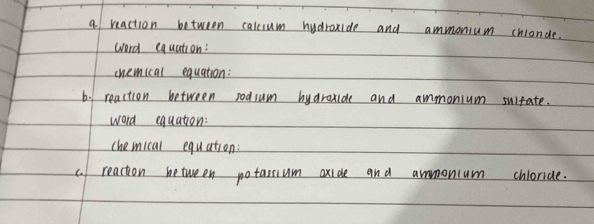 a. reaction between calcium hydroxide and ammonium chloride.
word equation:
chemical equation:
b. reaction between sodium hydroxide and ammonium sulfate.
word equation:
chemical equation:
c. reaction between potassium oxide and ammonium chloride.